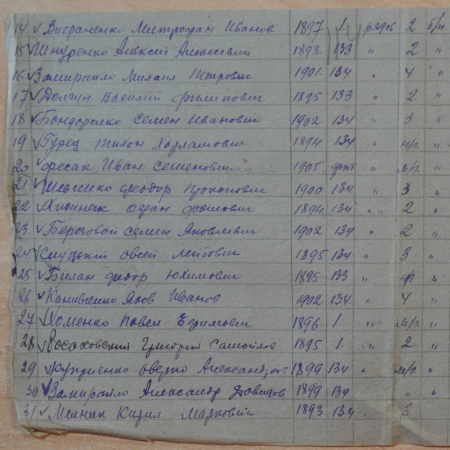 14 Виграненко Митрофан Иванов 1897 1. рядов 2 б/п.
15 Шнуренко Алексей Алексеевич 1898 133 " 2 "
16 Замирайло Михаил Петрович 1901 134 " 4 "
17 Долгун Василий Филипович 1895 133 " 2 "
18 Бондаренко Семен Иванович 1902 134 " 3 "
19 Гурец Тихон Харлампович 1894 134 " м/г. "
20 Иван Семенович 1905 " м/г. "
21 Шевченко Федор Прокопович 1900 134 " 3 "
22 1894 134 " 2 "
23 Береговой Семен Яковлевич 1902 134 " 2 "
24 Слуцкий Овсей 1895 134 " 3 "
25 Билан Федор Юхимович 1895 133 " "
26 Яков Иванов 1902 134 " 4 "
27 Хоменко Павел Ефимович 1896 1. " м/г. "
28 Косаховский Григорий Самойлов 1895 1. " 2 "
29 Куприенко Оверко Александров 1899 134 " м/г. "
30 Замирайло Александр Давидов 1899 134 " " "
31 Мельник Кирил Маркович 1893 134 " 3